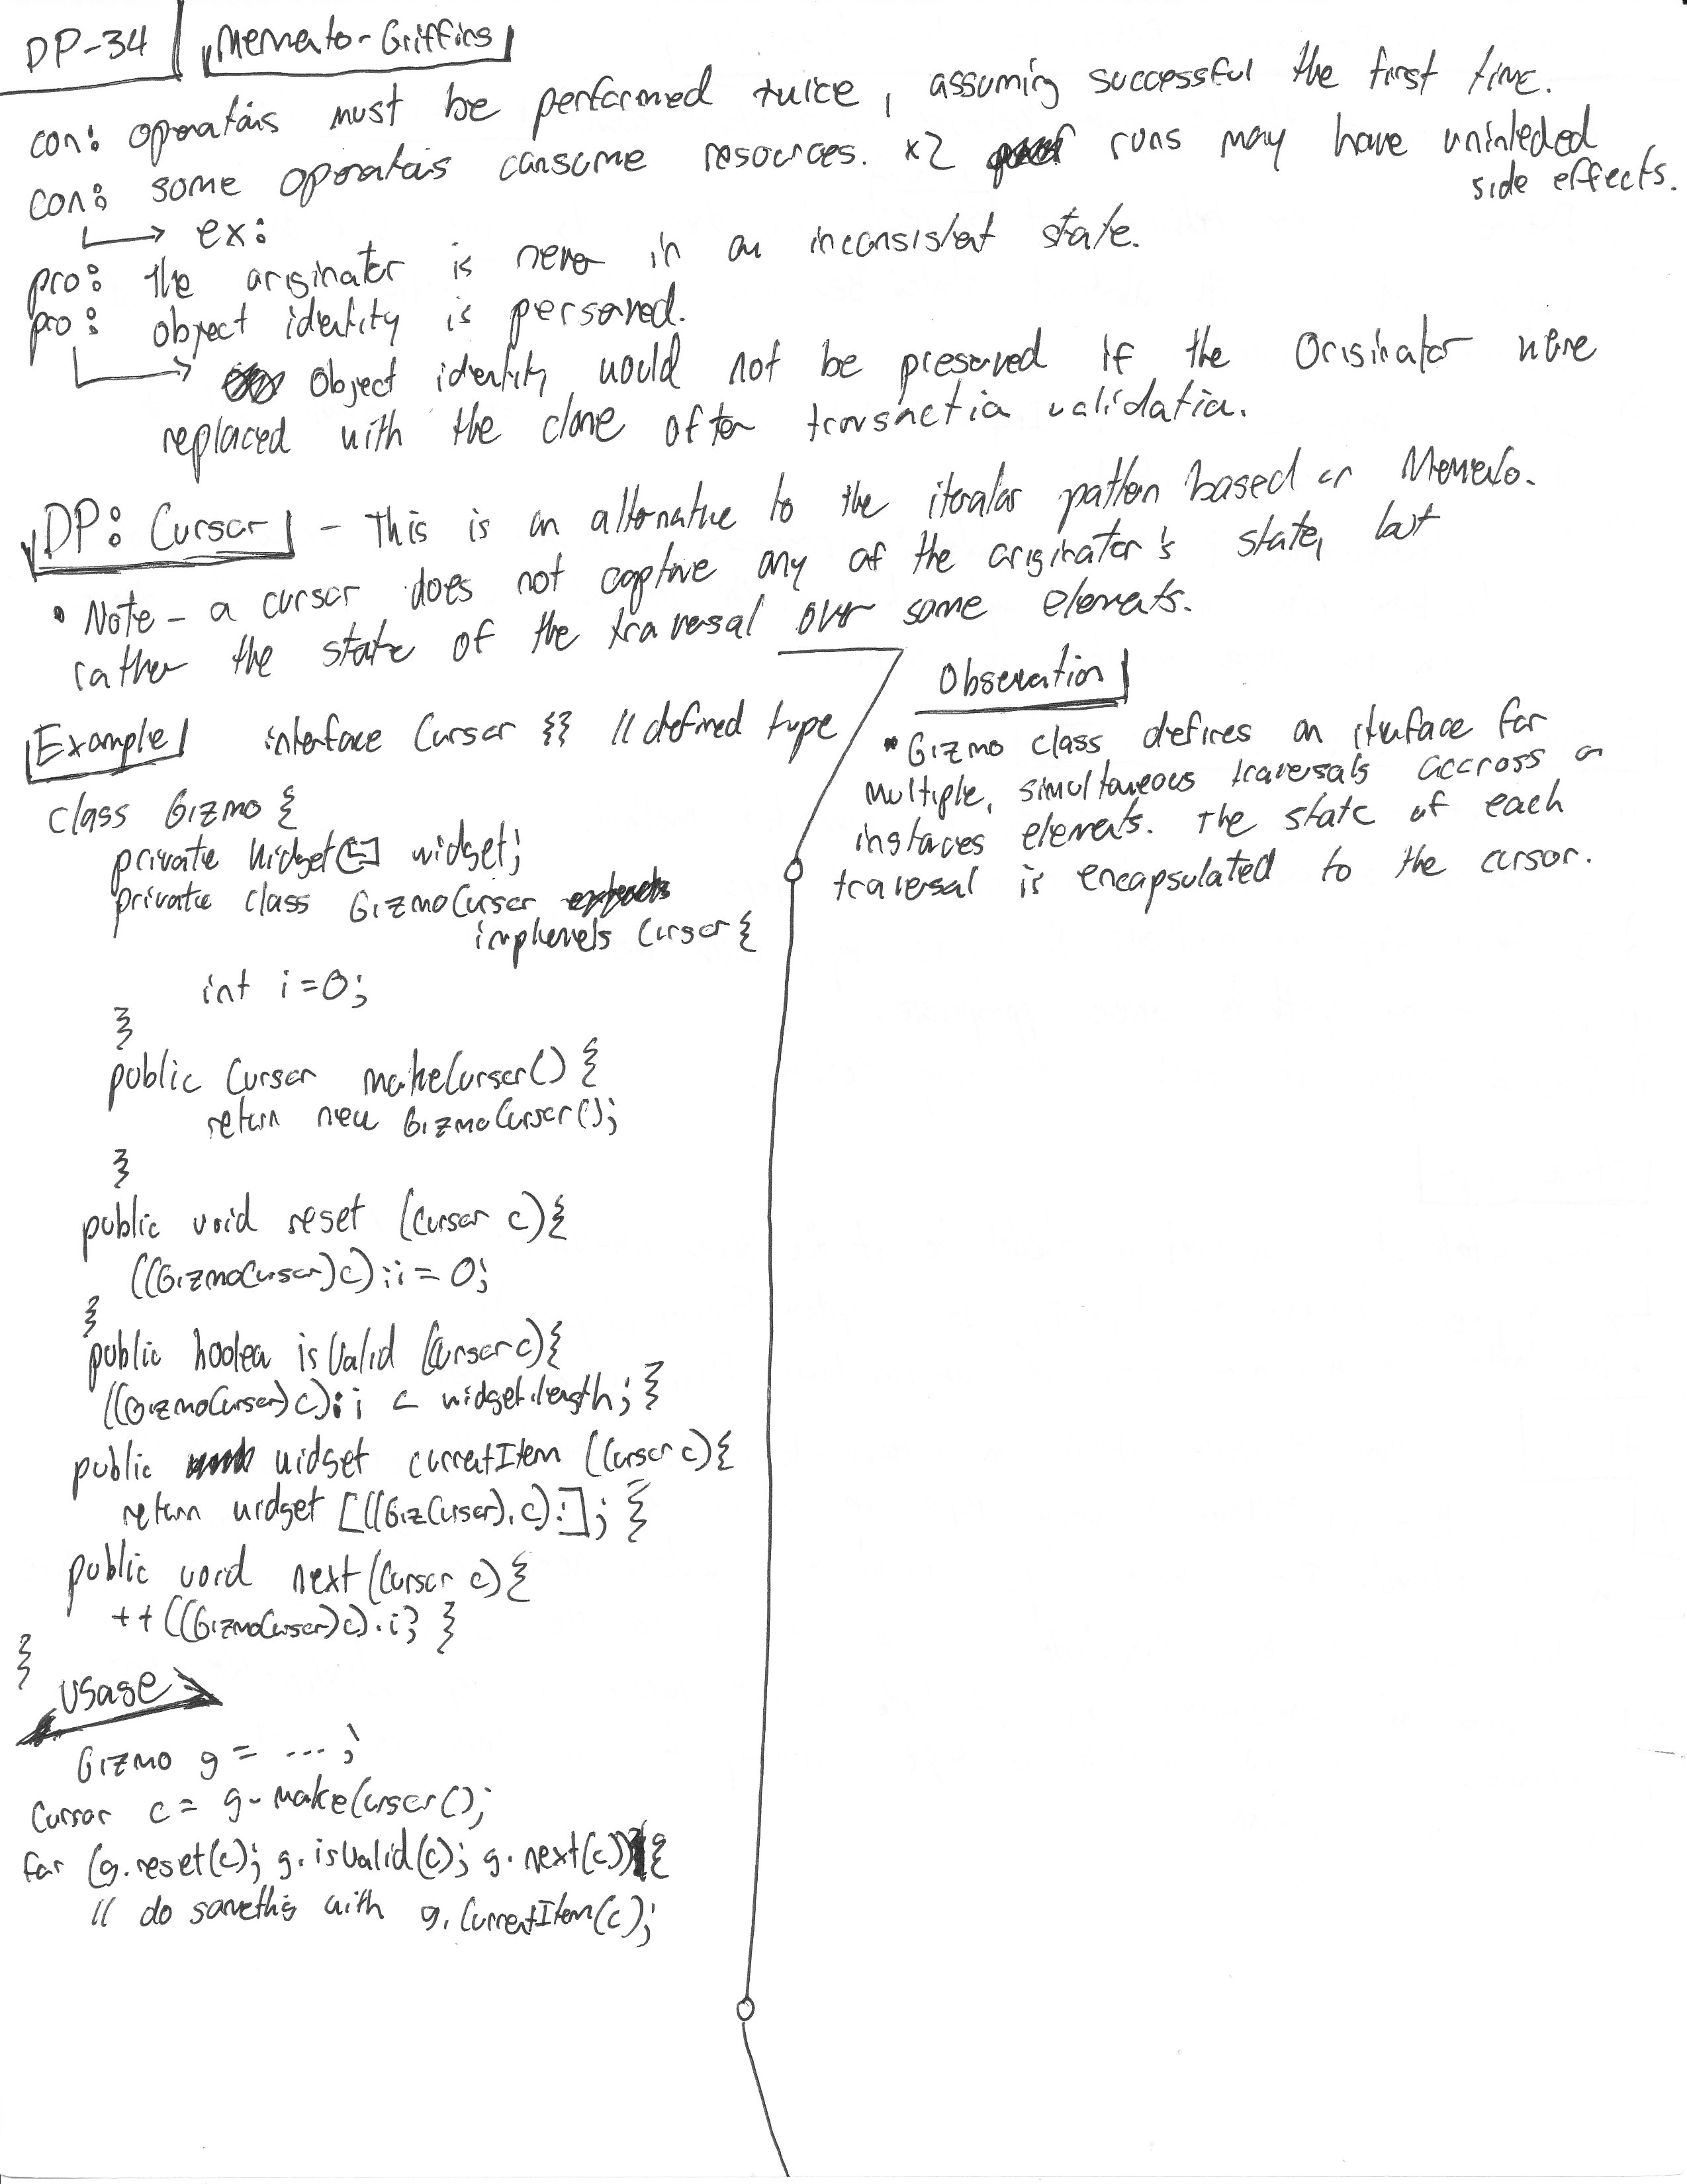 DP-34 Memento-Griffins
con: operations must be performed twice, assuming successful the first time.
con: some operations consume resources. x2 runs may have uninteded
side effects.
→ ex:
pro: the originator is never in an inconsistent state.
pro: object identity is perserved.
→ Object identity would not be preserved if the Originator were
replaced with the clone after transaction validation.
DP: Cursor - This is an alternative to the iterator pattern based on Memento.
• Note - a cursor does not captive any of the originator's state, but
rather the state of the traversal over some elements.
Example interface Cursor {} // defined type
class Gizmo {
private Widget[] widget;
private class GizmoCursor
implements Cursor {
int i=0;
}
public Cursor makeCursor() {
return new GizmoCursor();
}
public void reset (Cursor c){
((GizmoCursor)c).i = 0;
}
public boolean isValid (Cursor c){
((GizmoCursor)c).i < widget.length; }
public widget currentItem (Cursor c){
return widget [((GizCursor).c).i]; }
public void next (Cursor c) {
++((GizmoCursor)c).i; }
}
Usage
Gizmo g = ...;
Cursor c = g.makeCursor();
for (g.reset(c); g.isValid(c); g.next(c)){
// do something with g.CurrentItem(c);
Observation
• Gizmo class defines an interface for
multiple, simultaneous traversals accross a
instances elements. The state of each
traversal is encapsulated to the cursor.